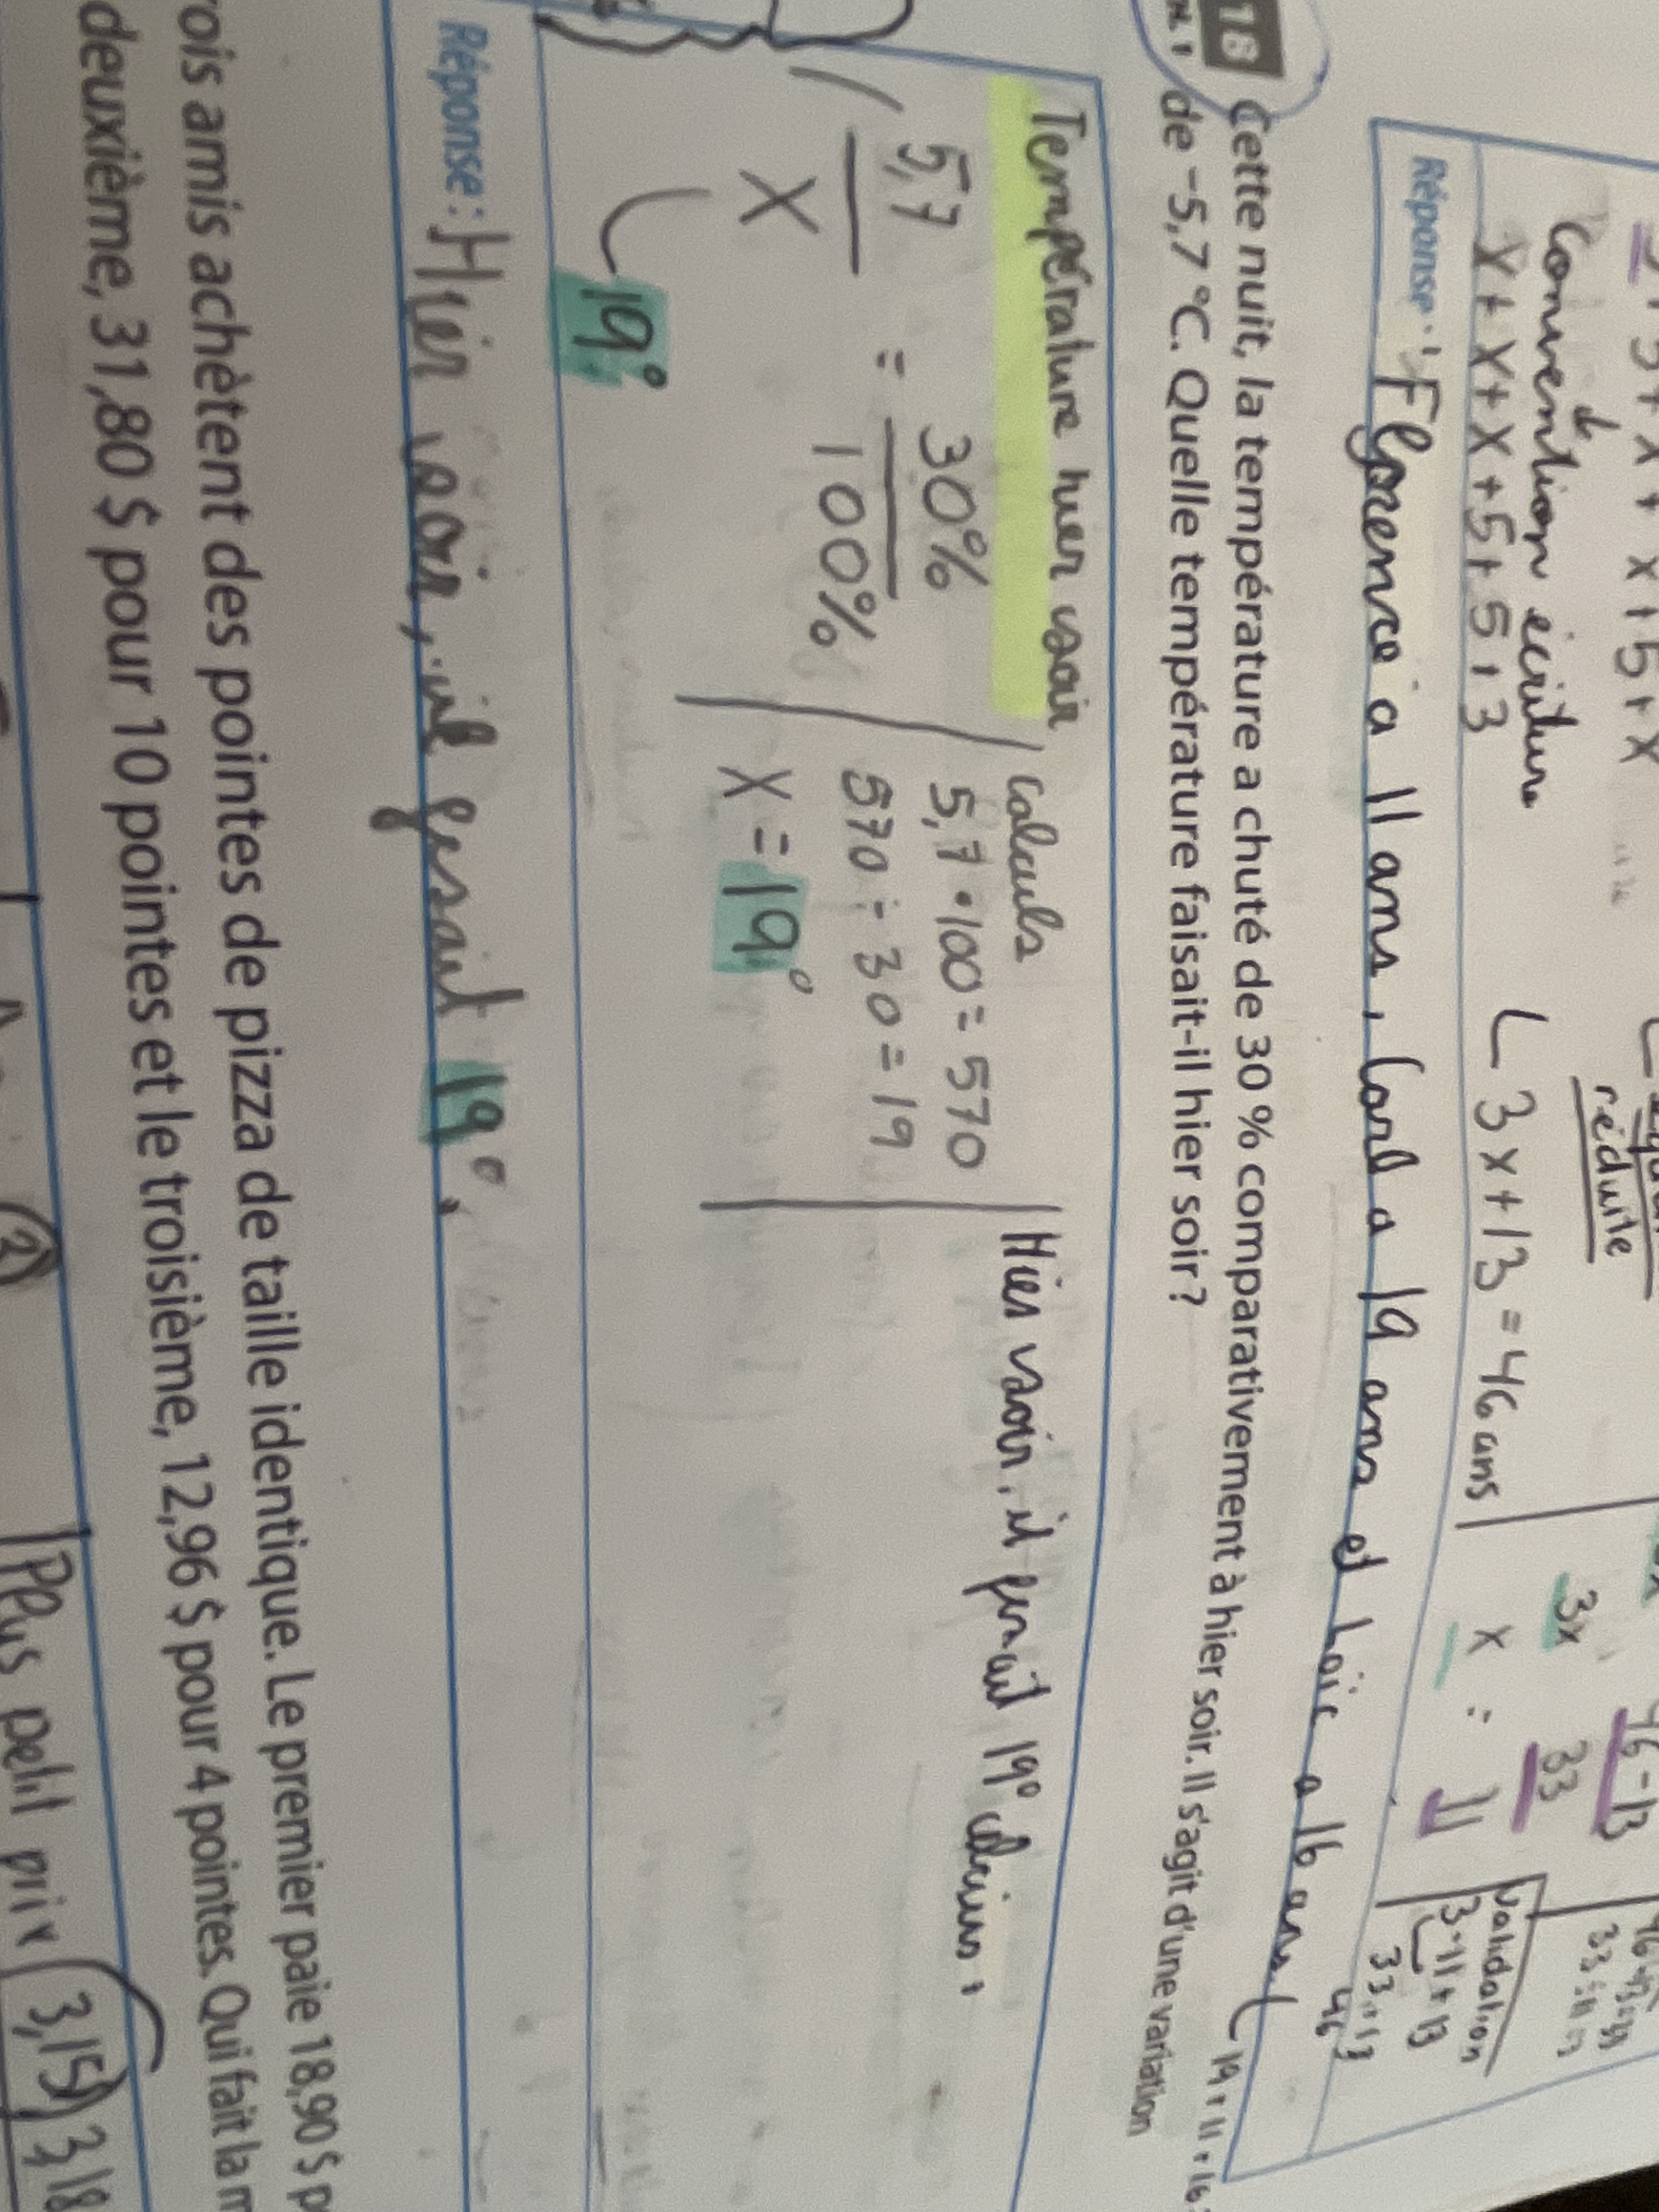 x + 5 + x
Convention d'écriture
réduite
x + x + x + 5 + 5 + 3
3x + 13 = 46 ans
46 - 13
3x 33
x = 11
Validation
3·11 + 13
33 + 13
46
Réponse : Florence a 11 ans, Carl a 19 ans et Loïc a 16 ans.
18 Cette nuit, la température a chuté de 30 % comparativement à hier soir. Il s'agit d'une variation
de −5,7 °C. Quelle température faisait-il hier soir?
Température hier soir
5,7 = 30%
x 100%
19°
Calculs
5,7 · 100 = 570
570 ÷ 30 = 19
x = 19°
Hier soir, il fesait 19°
Réponse : Hier soir, il fesait 19°.
rois amis achètent des pointes de pizza de taille identique. Le premier paie 18,90 $ p
deuxième, 31,80 $ pour 10 pointes et le troisième, 12,96 $ pour 4 pointes. Qui fait la m
2
Plus petit prix 3,15